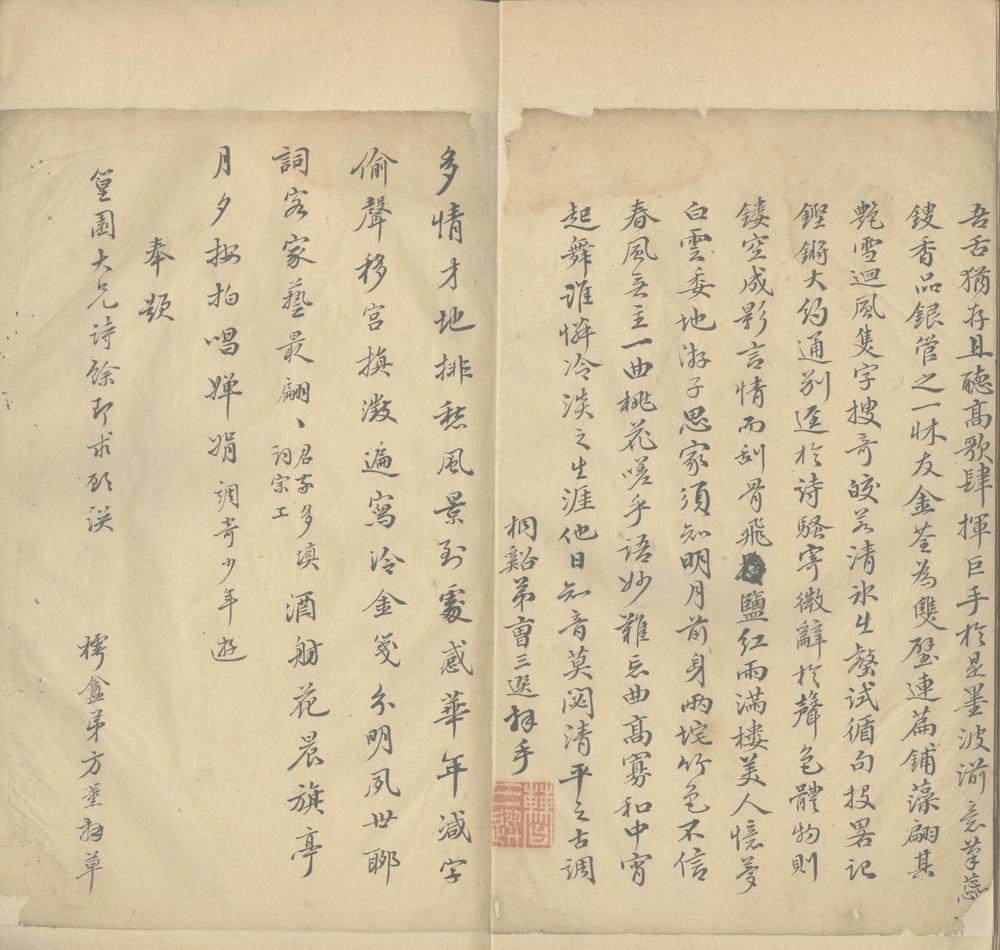 吾舌猶存且聽高歌肆揮巨手於是墨波湔意筆蕊
鎪香品銀管之一牀友金荃為雙璧連篇鋪藻翩其
艷雪迴風隻字搜奇皎若清氷出壑試循句投畧記
鏗鏘大約通別逕於詩騷寄微辭於聲色體物則
鏤空成影言情而刮骨飛鹽紅雨滿樓美人憶夢
白雲委地游子思家須知明月前身兩垞竹色不信
春風無主一曲桃花嗟乎語妙難忘曲高寡和中宵
起舞誰憐冷淡之生涯他日知音莫閟清平之古調
桐谿弟曹三選拜手
多情才地排愁風景到處感華年減字
偷聲移宮換徵遍寫冷金箋分明夙世聊
詞客家藝最翩〻君家多填詞宗工酒舫花晨旗亭
月夕按拍唱嬋娟調寄少年遊
奉題
篁園大兄詩餘即求顧誤
樗盦弟方薰拜草